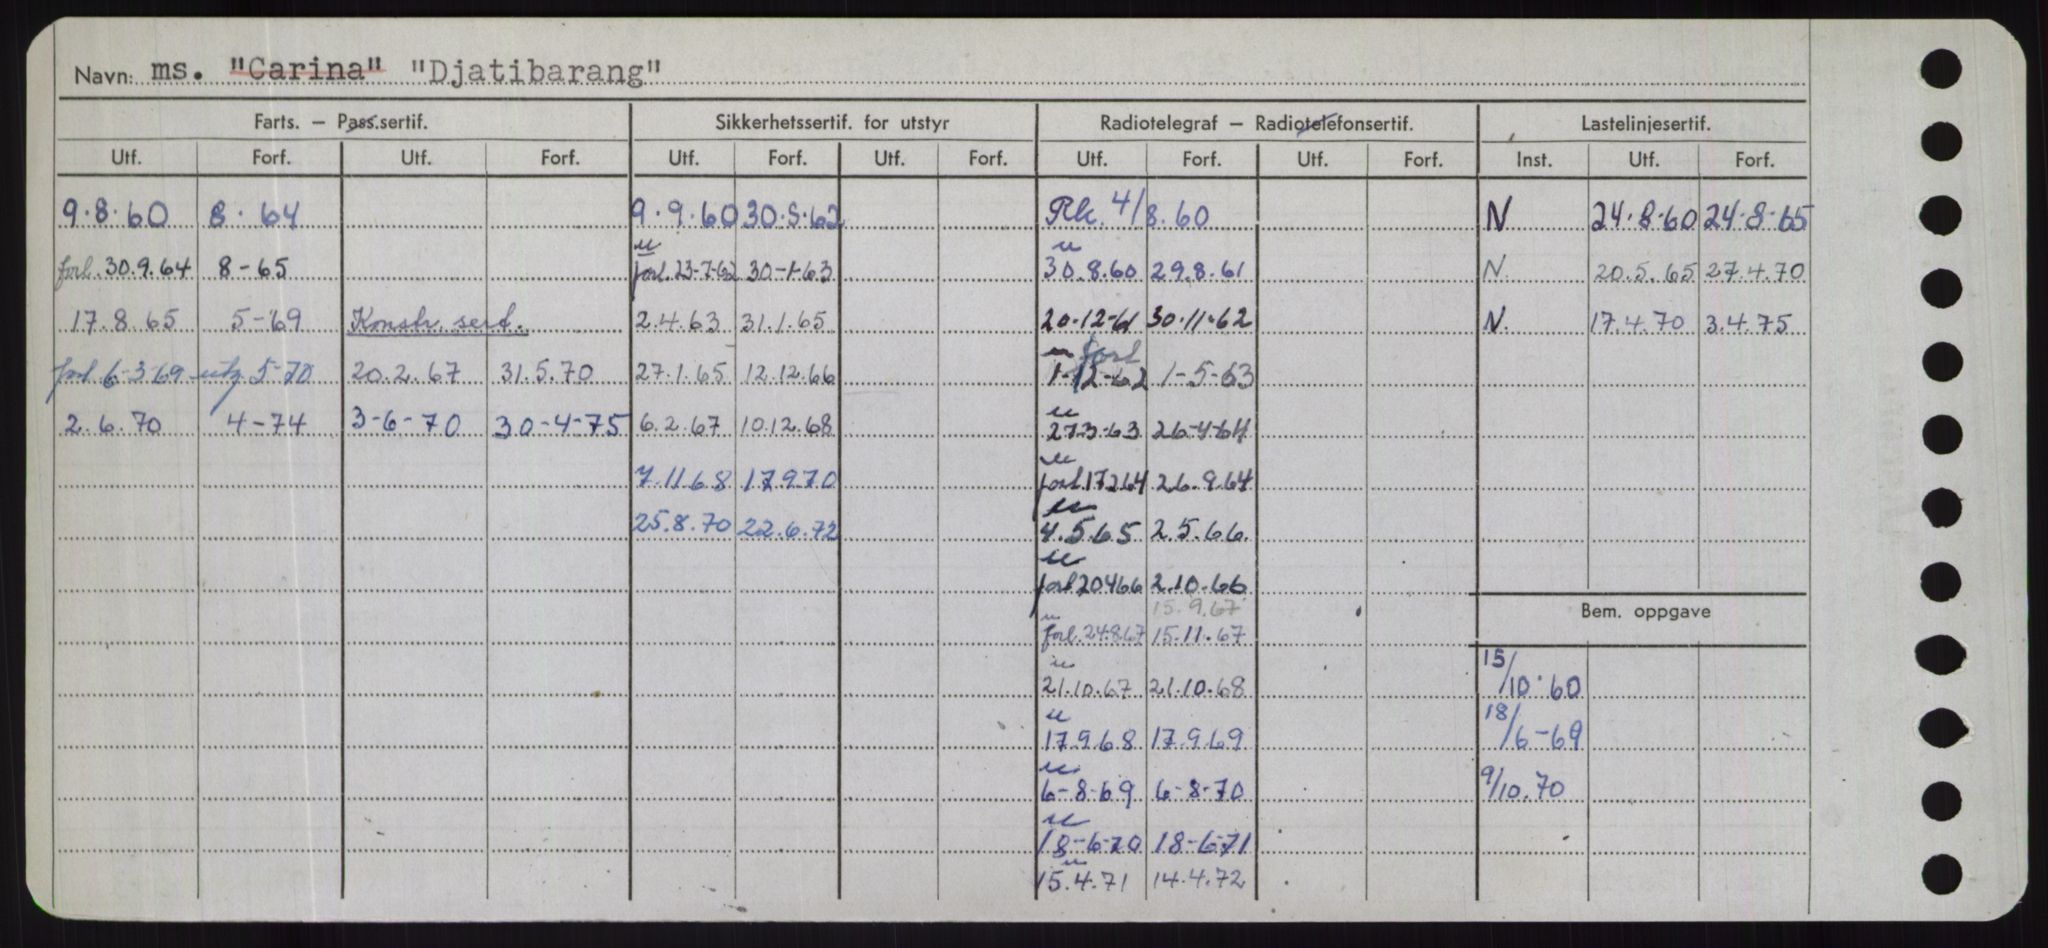 Navn: ms. "Carina" "Djatibarang"
Farts. — Pass.sertif. Sikkerhetssertif. for utstyr Radiotelegraf — Radiotelefonsertif. Lastelinjesertif.
Utf. Forf. Utf. Forf. Utf. Forf. Utf. Forf. Utf. Forf. Utf. Forf. Inst. Utf. Forf.
9.8.60 8.64 9.9.60 30.8.62 Rk. 4/8.60 N 24.8.60 24-8-65
u u
forl. 30.9.64 8-65 forl. 23-7-62 30-1-63 30.8.60 29.8.61 N. 20.5.65 27.4.70
17.8.65 5-69 Konstr. sert. 2.4.63 31.1.65 20-12-61 30.11.62 N. 17.4.70 3.4.75
u forl
forl 6-3-69 utg 5-70 20.2.67 31.5.70 27.1.65 12.12.66 1-12-62 1-5-63
u
2.6.70 4-74 3-6-70 30-4-75 6.2.67 10.12.68 27-3-63 26-4-64
u
7.11.68 17.9.70 forl 17264 26.9.64
u
25.8.70 22.6.72 4.5.65 2.5.66.
u
forl 20466 2.10.66
15.9.67
Bem. oppgave
u
forl. 24.8.67 15.11.67
u
21.10.67 21.10.68 15/10.60
u
17.9.68 17.9.69 18/6-69
u
6-8-69 6-8-70 9/10.70
u
18-6-70 18-6-71
u
15.4.71 14.4.72